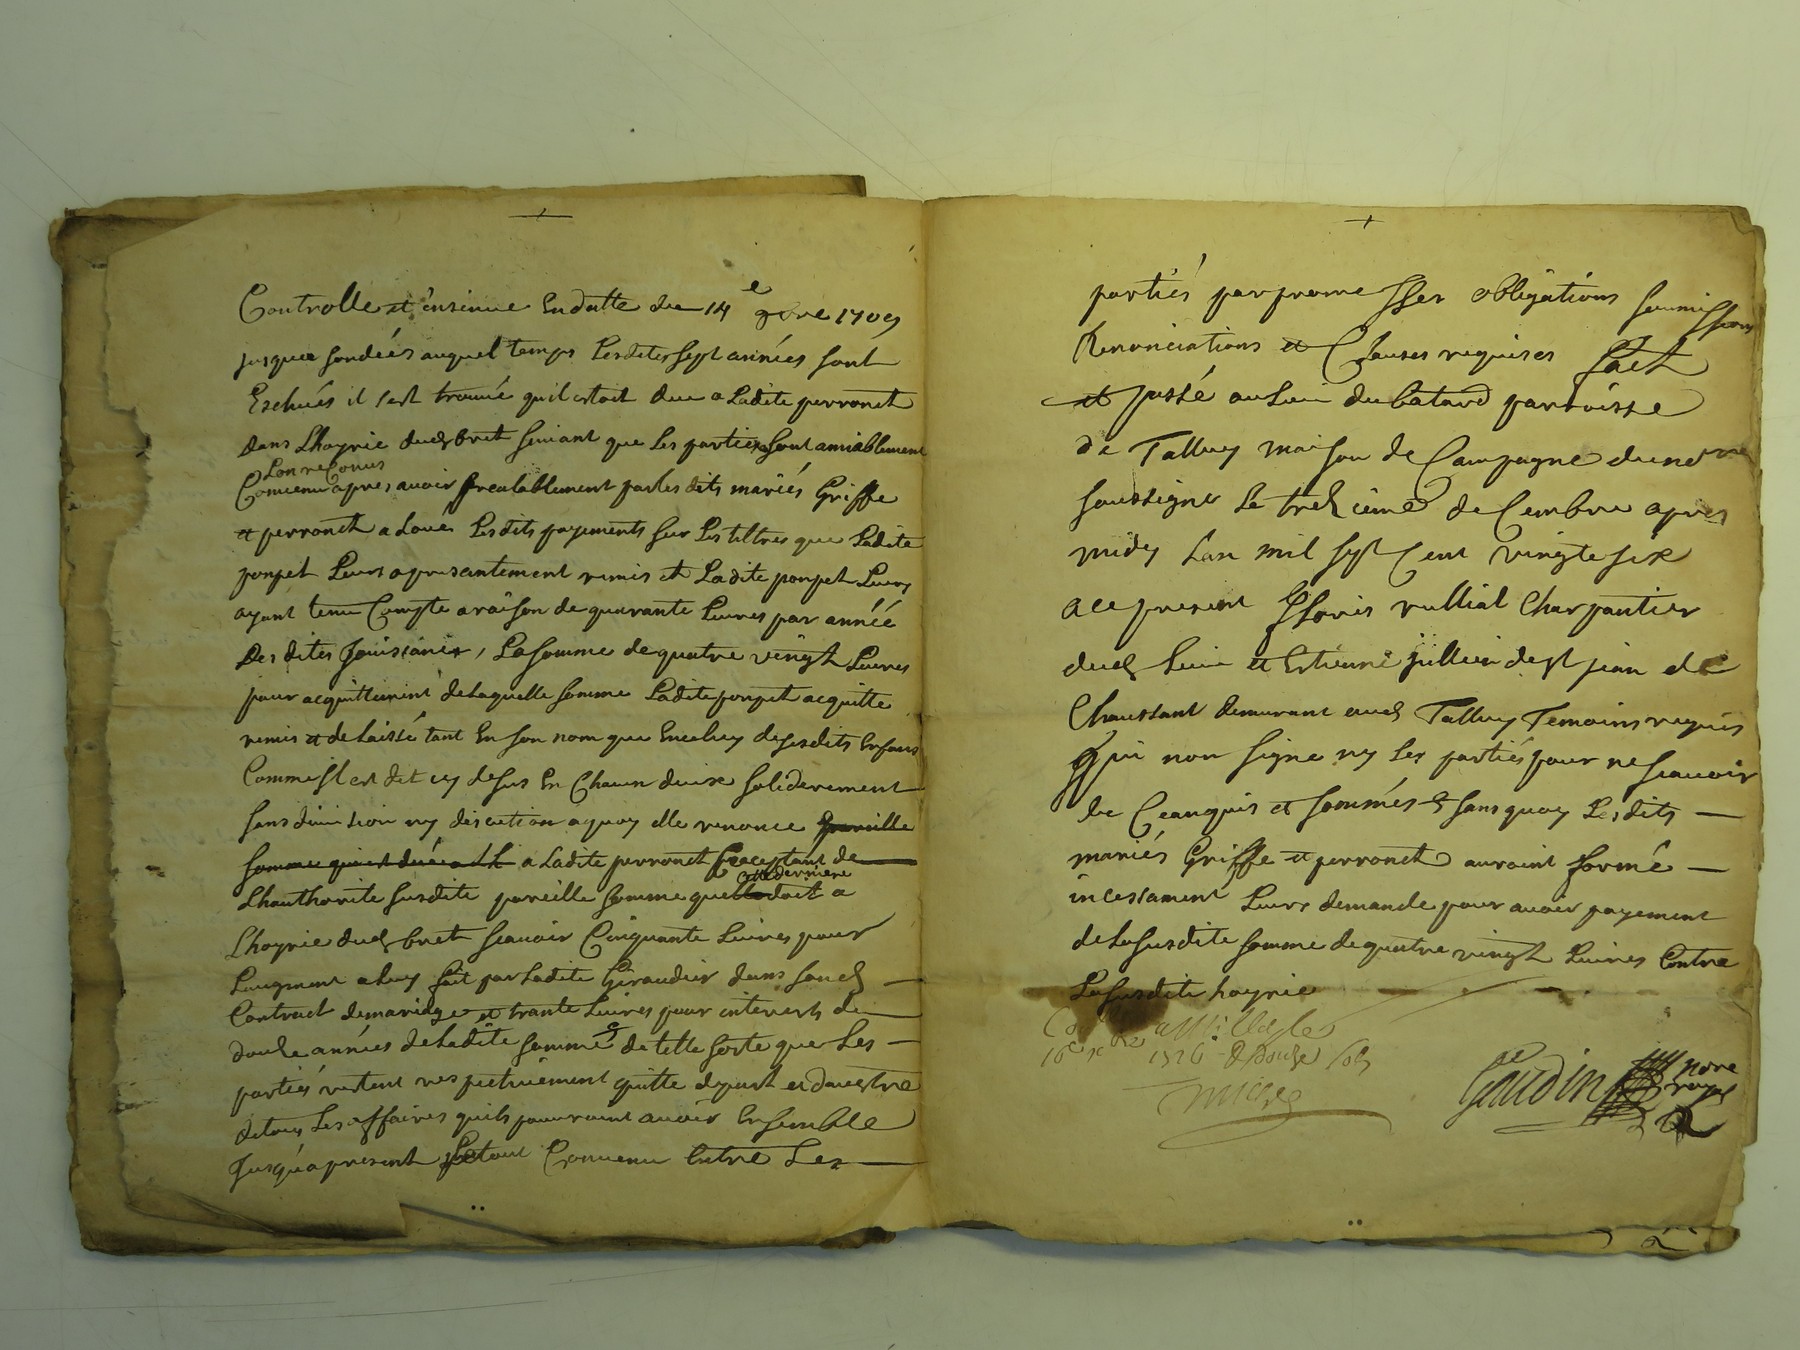 Controlle et insinue en datte du 14e 9bre 1709
jusques sondées auquel temps lesdites sept années sont
Eschués il sest trouvé quil estoit deu a Ladite perronet
dans Lhoyrie dud bret suivant que les parties sont amiablement
Lon reConus
Convenu apres avoir prealablement par les dits mariés Griffe
et perronet aloué lesdits payements sur les tiltres que Ladite
ponpet Leurs a presantement remis et Ladite ponpet Leurs
ayant tenu Compte a raison de quarante Livres par année
des dites Jouisiances, La somme de quatre vingt Livres
pour acquittement de laquelle somme Ladite ponpet acquitte
remis et delaissé tant En son nom que En celuy de sesdits Enfans
Comme Il est dit cy desus En Chacun deux soliderement
sans division ny discution a quoy elle renonce pareille
somme qui est deüe a Ladite perronet preceptant de
cette derniere
Lhauthorite susdite pareille somme que doit a
Lhoyrie dud bret scavoir Cinquante Livres pour
Laugment a Luy fait par Ladite Giraudier dans soud
Contract de mariage et trante Livres pour interests de
douze années de Ladite somme de telle sorte que Les
parties restent respectivement quitte depart et dautre
de tous Les affaires quils pourraint avoir Ensemble
Jusqua present Le tout Convenu Entre Les
parties par promesses obligations soumissions
Renonciations et Clauses requises fait
et passé au Lieu du batard parroisse
de Talluy maison de Campagne du no.re
soussigne Le treizieme decembre apres
midy Lan mil sept Cent vingte six
a ce present floris rullial Charpantier
dud Lieu et Estienne jullien de st jean de
Chaussant demurant aud Talluy Temoins requis
qui non signe ny les parties pour ne scavoir
de Ce enquis et sommés sans quoy Lesdits
mariés Griffe et perronet auroint formé
incessament Leurs demande pour avoir payement
de La susdite somme de quatre vingt Livres Contre
La susdite hoyrie
16e xbre 1726 R douze sols
Gaudin no.re royal